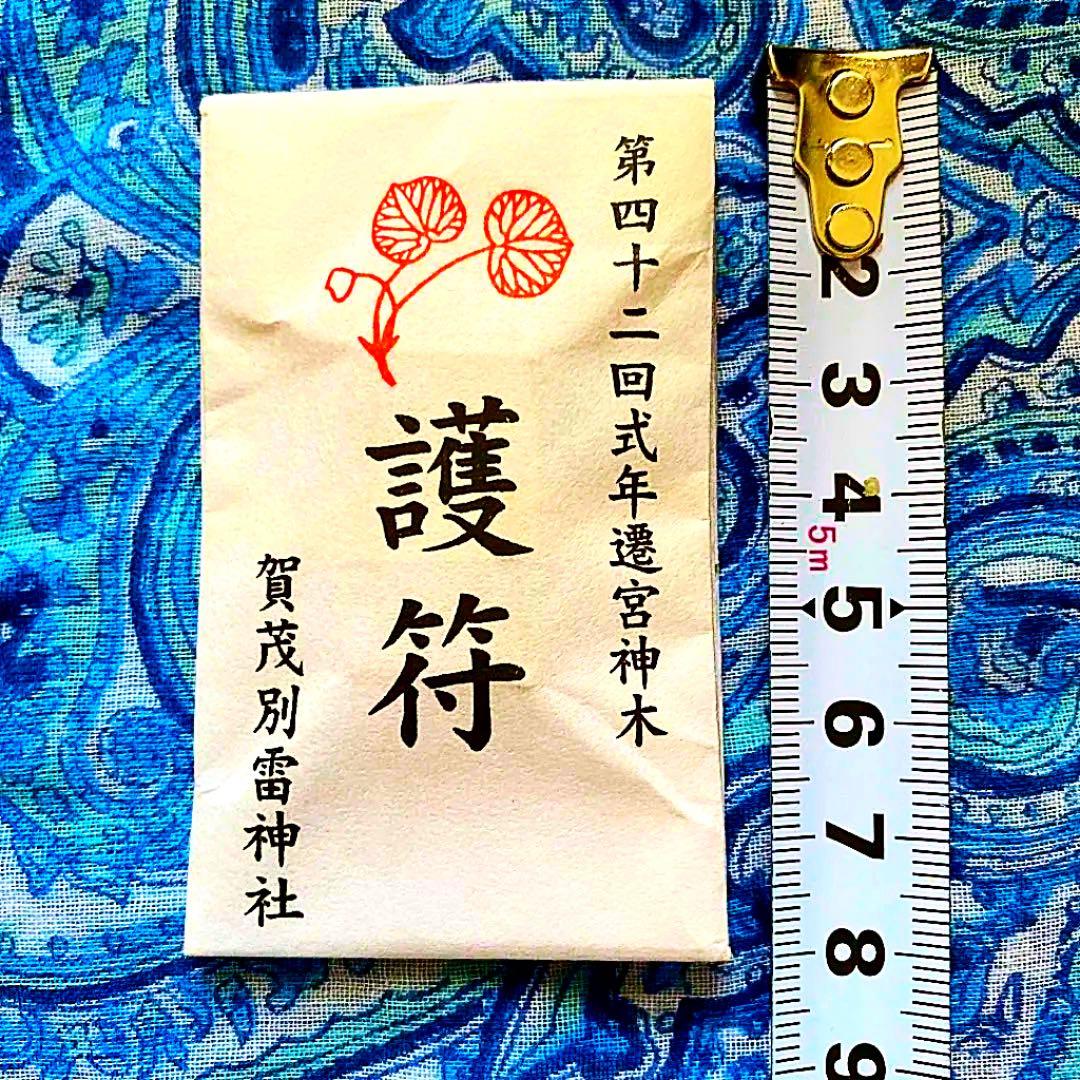 第四十二回式年遷宮神木
護符
賀茂別雷神社
2
3
4
5m
5
6
7
8
9